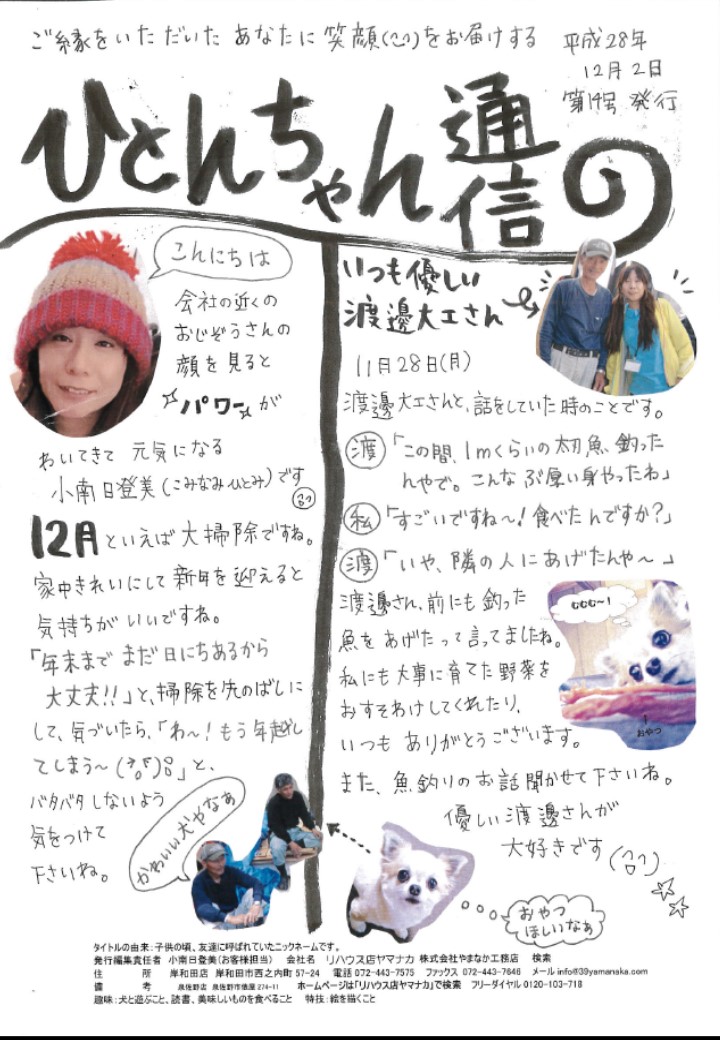 ご縁をいただいた あなたに 笑顔(^^)をお届けする
平成28年
12月2日
第14号 発行
ひとんちゃん通信
の
こんにちは
会社の近くの
おじぞうさんの
顔を見ると
パワーが
わいてきて 元気になる
小南日登美(こみなみひとみ)です
12月といえば 大掃除ですね。
家中きれいにして 新年を迎えると
気持ちがいいですね。
「年末まで まだ日にちあるから
大丈夫!!」と、掃除を先のばしに
して、気づいたら、「わ〜!もう年越し
てしまう〜」と、
バタバタしないよう
気をつけて
下さいね。
かわいい犬やなぁ
いつも優しい
渡邊大工さん
11月28日(月)
渡邊大工さんと、話をしていた時のことです。
渡「この間、1mくらいの太刀魚、釣った
んやで。こんな ぶ厚い身やったわ」
私「すごいですね〜!食べたんですか?」
渡「いや、隣の人にあげたんや〜」
渡邊さん、前にも釣った
魚をあげたって言ってましたね。
私にも大事に育てた野菜を
おすそわけしてくれたり、
いつも ありがとうございます。
また、魚釣りのお話聞かせて下さいね。
優しい渡邊さんが
大好きです
むむむ〜!
おやつ
おやつ
ほしいなぁ
タイトルの由来:子供の頃、友達に呼ばれていたニックネームです。
発行編集責任者 小南日登美(お客様担当) 会社名 リハウス店ヤマナカ 株式会社やまなか工務店 検索
住 所 岸和田店 岸和田市西之内町 57-24 電話 072-443-7575 ファックス 072-443-7646 メール info@39yamanaka.com
備 考 泉佐野店 泉佐野市俵屋 274-11 ホームページは「リハウス店ヤマナカ」で検索 フリーダイヤル 0120-103-718
趣味:犬と遊ぶこと、読書、美味しいものを食べること 特技:絵を描くこと